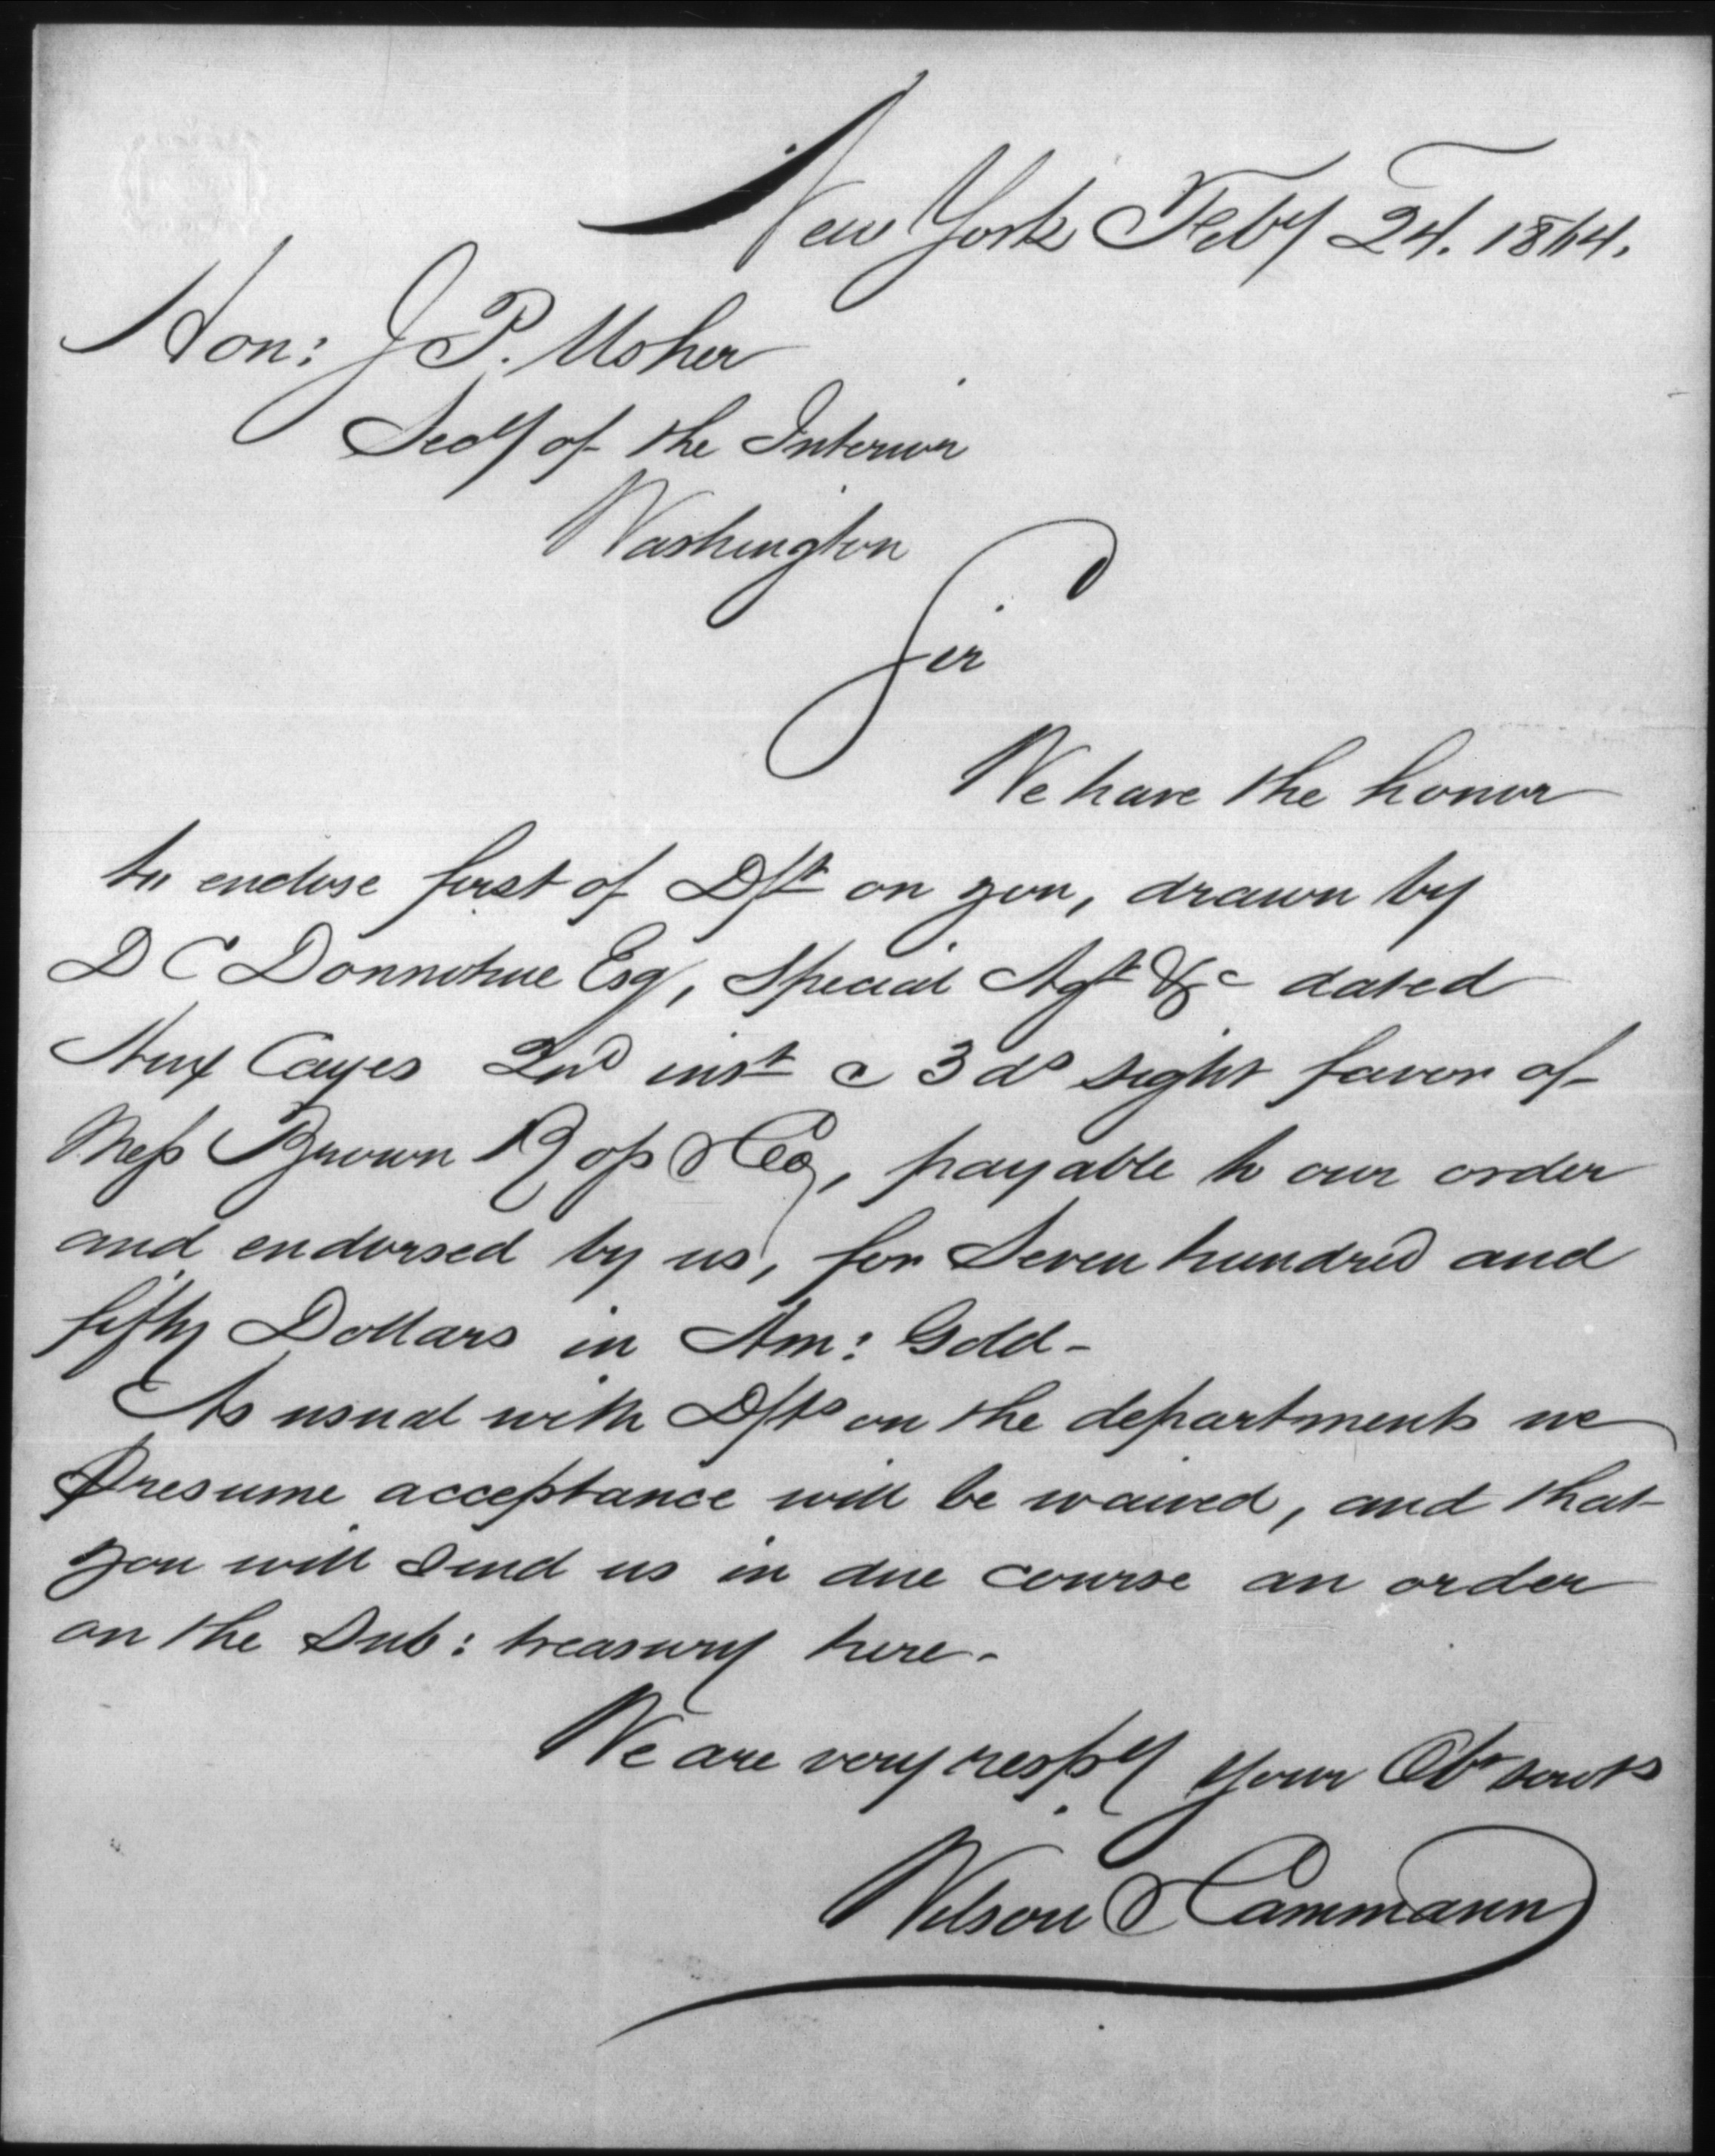 New York Feby 24. 1864.
Hon: J P. Usher
Secy of the Interior
Washington
Sir
We have the honor
to enclose first of Dft on you, drawn by
D C Donnohue Esq, Special Agt &c dated
Aux Cayes 2nd inst @ 3 ds sight favor of
Mess Brown & Co, payable to our order
and endorsed by us, for Seven hundred and
fifty Dollars in Am: Gold -
As usual with Dfts on the departments we
presume acceptance will be waived, and that
you will send us in due course an order
on the Sub: treasury here -
We are very respy your Obt servts
Wilson & Cammann